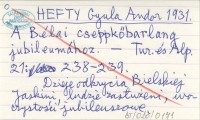 HEFTY Gyula Andor 1931.
A Bélai cseppkőbarlang
jubileumához. — Tur. és Alp.
21: 238-239.
Dzieje odkrycia Bielskiej
Jaskini, ludzie zasłużeni, uro-
czystości jubileuszowe